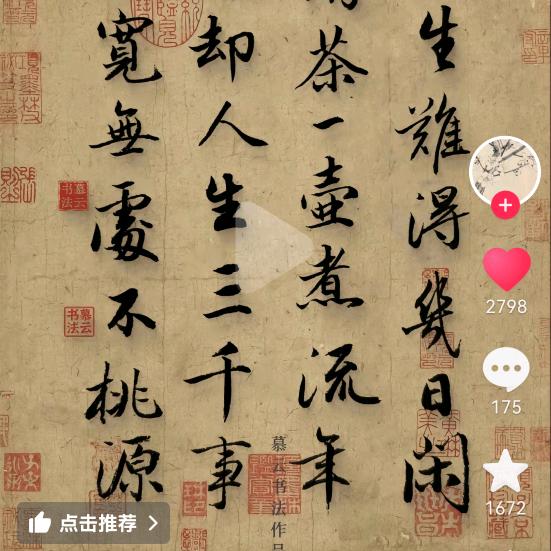 生難得幾日閑
茶一壺煮流年
却人生三千事
寬無處不桃源
慕云书法作品
慕云书法
慕云书法
2798
175
1672
点击推荐